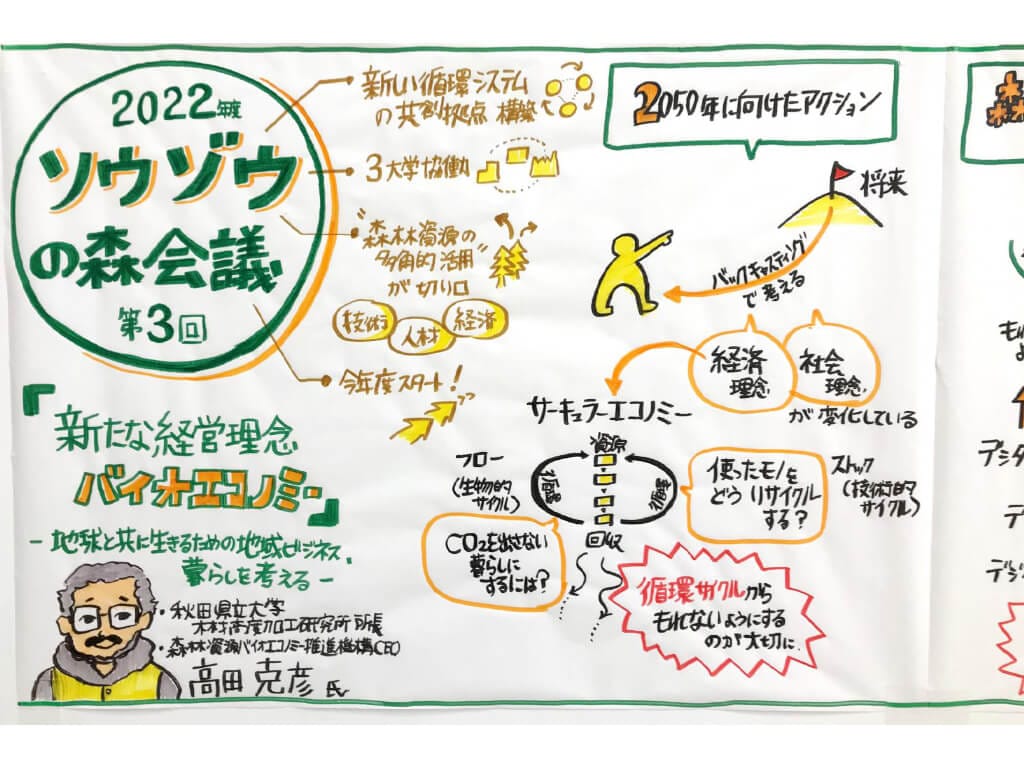 2022年度
ソウゾウ
の森会議
第3回
新しい循環システム
の共創拠点 構築
3大学協働
"森林資源の
多角的活用"
が切り口
技術
人材
経済
今年度スタート!
『新たな経営理念
バイオエコノミー』
- 地球と共に生きるための地域ビジネス、
暮らしを考える -
・秋田県立大学
木材高度加工研究所 所長
・森林資源バイオエコノミー推進機構CEO
高田 克彦 氏
2050年に向けたアクション
将来
バックキャスティング
で考える
経済
理念
社会
理念
が変化している
サーキュラーエコノミー
資源
フロー
(生物的
サイクル)
循環
循環
回収
ストック
(技術的
サイクル)
使ったモノを
どうリサイクル
する?
CO2を出さない
暮らしに
するには?
循環サイクルから
もれないようにする
のが大切に